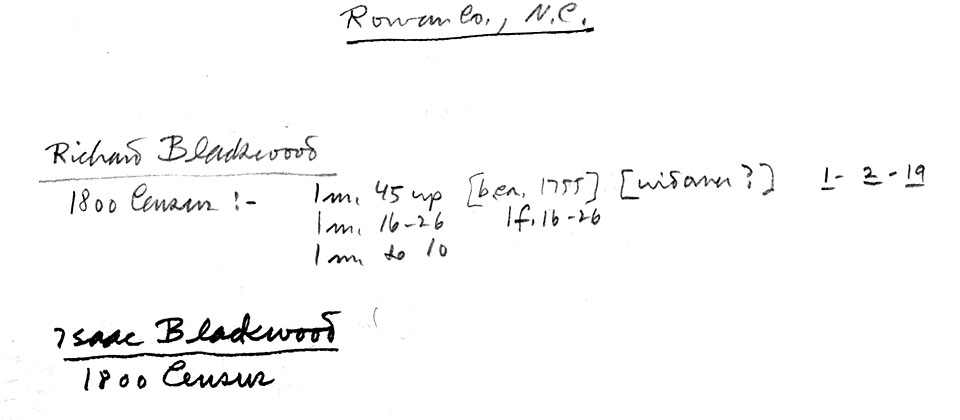 Rowan Co., N.C.
Richard Blackwood
1800 Census :- 1 m. 45 up [ben. 1755] [widower?] 1 - 2 - 19
1 m. 16-26 1 f. 16-26
1 m to 10
Isaac Blackwood
1800 Census